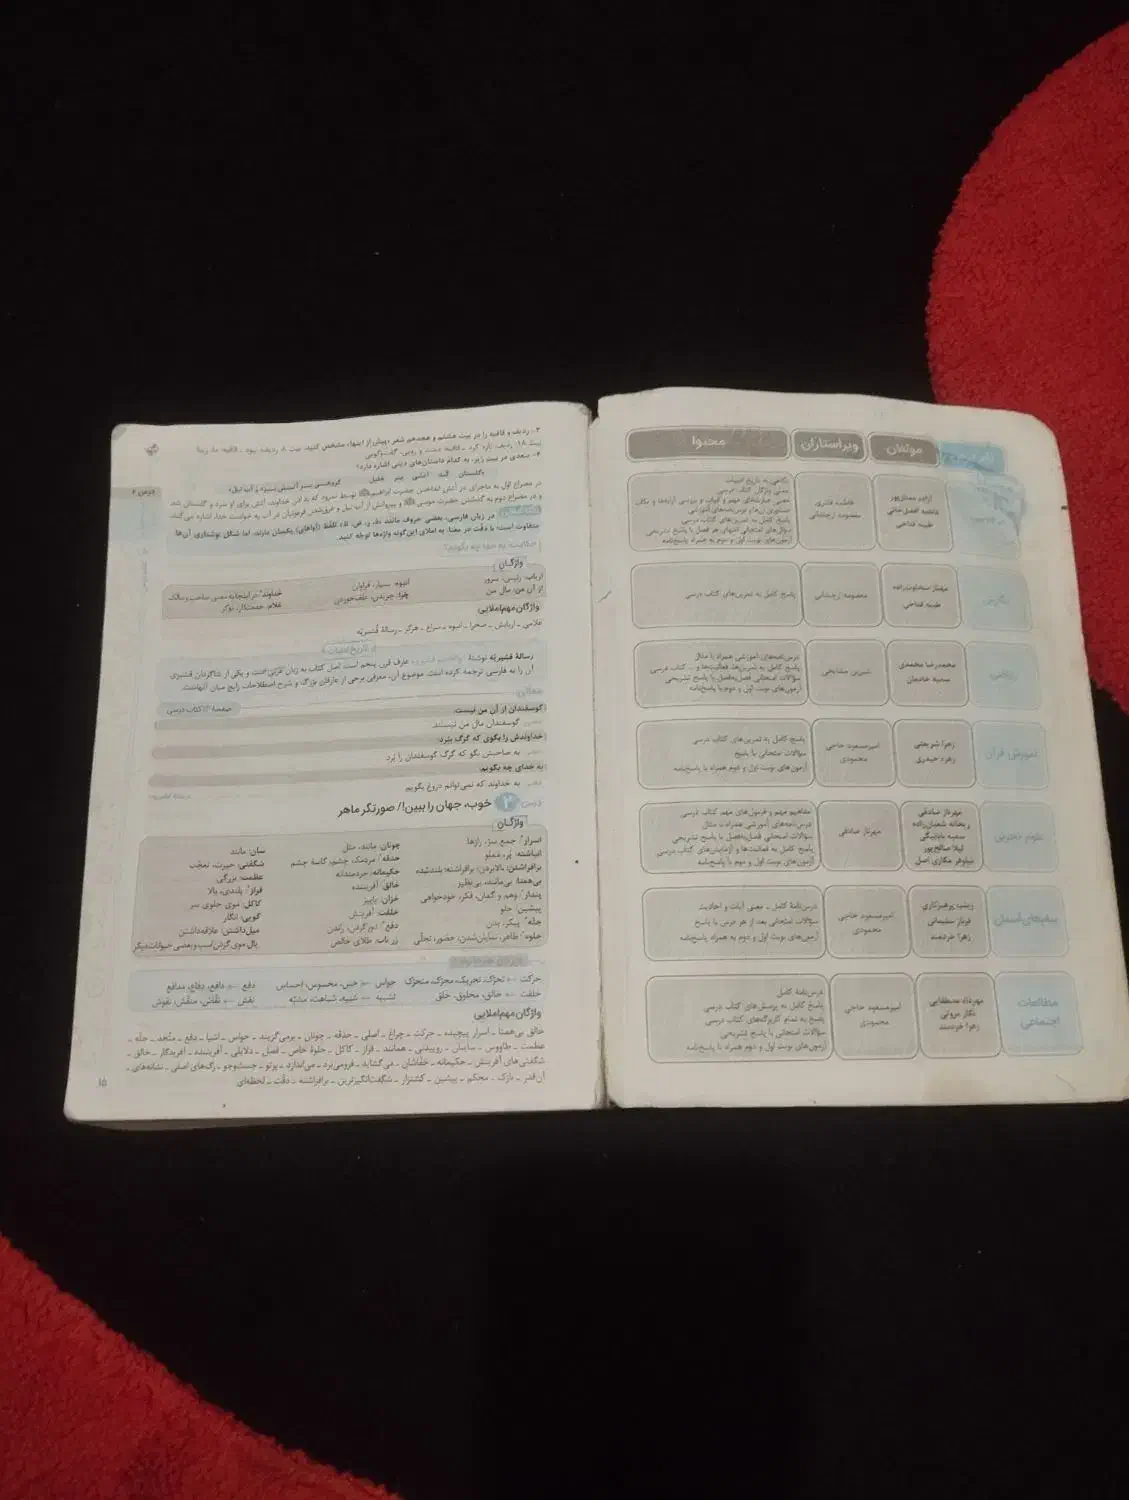 نام درس
مؤلفان
ویراستاران
محتوا
نگاهی به تاریخ ادبیات
معنی واژگان کتاب درسی
پاسخ کامل به تمرین‌های کتاب درسی
آزمون‌های نوبت اول و دوم به همراه پاسخ‌نامه
فاطمه قادری
معصومه ارجستانی
طیبه فتاحی
نگارش
طیبه فتاحی
معصومه ارجستانی
پاسخ کامل به تمرین‌های کتاب درسی
ریاضی
محمدرضا محمدی
سمیه خادمان
شیرین مشایخی
درس‌نامه‌های آموزشی همراه با مثال
پاسخ کامل به تمرین‌ها، فعالیت‌ها و ... کتاب درسی
سؤالات امتحانی فصل‌به‌فصل با پاسخ تشریحی
آزمون‌های نوبت اول و دوم با پاسخ‌نامه
آموزش قرآن
زهرا شریعتی
زهره حیدری
امیرمسعود حاجی
محمودی
پاسخ کامل به تمرین‌های کتاب درسی
سؤالات امتحانی با پاسخ
آزمون‌های نوبت اول و دوم همراه با پاسخ‌نامه
علوم تجربی
مهرناز صادقی
ریحانه شعبان‌زاده
سمیه بابابیگی
لیلا صالح‌پور
نیلوفر مکاری اصل
مهرناز صادقی
مفاهیم مهم و فرمول‌های مهم کتاب درسی
درس‌نامه‌های آموزشی همراه با مثال
سؤالات امتحانی فصل‌به‌فصل با پاسخ تشریحی
پاسخ کامل به فعالیت‌ها و آزمایش‌های کتاب درسی
آزمون‌های نوبت اول و دوم همراه با پاسخ‌نامه
پیام‌های آسمان
رشید پرهیزکاری
فرناز سلیمانی
زهرا خردمند
امیرمسعود حاجی
محمودی
درس‌نامهٔ کامل ـ معنی آیات و احادیث
سؤالات امتحانی بعد از هر درس با پاسخ
آزمون‌های نوبت اول و دوم به همراه پاسخ‌نامه
مطالعات
اجتماعی
مهرداد مصطفایی
نگار مروتی
زهرا خردمند
امیرمسعود حاجی
محمودی
درس‌نامهٔ کامل
پاسخ کامل به پرسش‌های کتاب درسی
پاسخ به تمام کاربرگه‌های کتاب درسی
سؤالات امتحانی با پاسخ تشریحی
آزمون‌های نوبت اول و دوم همراه با پاسخ‌نامه
درس ۲
۳ـ ردیف و قافیه را در بیت هشتم و هجدهم شعر «پیش از اینها» مشخص کنید. بیت ۸: ردیف: بود ـ قافیه: ما، زیبا
بیت ۱۸: ردیف: تازه کرد ـ قافیه: مشت و رویی، گفت‌وگویی
۴ـ سعدی در بیت زیر، به کدام داستان‌های دینی اشاره دارد؟
«گلستان کند آتشی بر خلیل گروهی بر آتش برد ز آب نیل»
در مصراع اول به ماجرای در آتش انداختن حضرت ابراهیم توسط نمرود که به اذن خداوند، آتش برای او سرد و گلستان شد
و در مصراع دوم به گذشتن حضرت موسی و پیروانش از آب نیل و غرق‌شدن فرعونیان در آب به خواست خدا، اشاره می‌کند.
در زبان فارسی، بعضی حروف مانند «ذ، ز، ض، ظ»، تلفّظ (آواهای) یکسان دارند، اما شکل نوشتاری آن‌ها
متفاوت است؛ با دقت در معنا، به املای این‌گونه واژه‌ها توجّه کنید.
حکایت: به خدا چه بگویم؟
واژگان
ارباب: رئیس، سرور انبوه: بسیار، فراوان خداوند: در اینجا به معنی صاحب و مالک
از آنِ من: مال من چَرا: چریدن، علف‌خوردن غلام: خدمتکار، نوکر
واژگان مهم املایی
غلامی ـ اربابش ـ صحرا ـ انبوه ـ سراغ ـ هرگز ـ رسالهٔ قُشیریّه
تاریخ ادبیات
رسالهٔ قشیریّه: نوشتهٔ ابوالقاسم قشیری، عارف قرن پنجم است. اصل کتاب به زبان عربی است و یکی از شاگردان قشیری
آن را به فارسی ترجمه کرده است. موضوع آن، معرفی برخی از عارفان بزرگ و شرح اصطلاحات رایج میان آنهاست.
معانی
گوسفندان از آنِ من نیست. صفحهٔ ۱۶ کتاب درسی
معنی: گوسفندان مال من نیستند.
خداوندش را بگوی که گرگ ببُرد.
معنی: به صاحبش بگو که گرگ گوسفندان را بُرد.
به خدای چه بگویم.
معنی: به خداوند که نمی‌توانم دروغ بگویم.
درس ۲ خوب، جهان را ببین!/ صورتگر ماهر
واژگان
اسرار: جمع سِرّ، رازها چونان: مانند، مثل سان: مانند
انباشته: پُر، مملو حدقه: مردمک چشم، کاسهٔ چشم شگفتی: حیرت، تعجّب
برافراشتن: بالابردن؛ برافراشته: بلندشده حکیمانه: خردمندانه عظمت: بزرگی
بی‌همتا: بی‌مانند، بی‌نظیر خالق: آفریننده فراز: بلندی، بالا
پندار: وهم و گمان، فکر، خودخواهی خزان: پاییز کاکل: موی جلوی سر
پیشین: جلو خلقت: آفرینش گویی: انگار
جثّه: پیکر، بدن دفع: دور کردن، راندن میل‌داشتن: علاقه‌داشتن
جلوه: ظاهر، نمایان‌شدن، حضور، تجلّی زر ناب: طلای خالص یال: موی گردن اسب و بعضی حیوانات دیگر
واژگان هم‌خانواده
حرکت ← تحرّک، تحریک، محرّک، متحرّک حواس ← حس، محسوس، احساس دفع ← دافع، دفاع، مدافع
خلقت ← خالق، مخلوق، خلق تشبیه ← شبیه، شباهت، مشبّه نقش ← نقّاش، منقّش، نقوش
واژگان مهم املایی
خالق بی‌همتا ـ اسرار پیچیده ـ حرکت ـ چراغ ـ اصلی ـ حدقه ـ چونان ـ برمی‌گزیند ـ حواس ـ اشیا ـ دفع ـ جثّه ـ
عظمت ـ طاووس ـ سایبان ـ روییدنی ـ همانند ـ فراز ـ کاکل ـ جلوهٔ خاص ـ فصل ـ دلایلی ـ آفریننده ـ آفریدگار ـ خالق ـ
شگفتی‌های آفرینش ـ حکیمانه ـ خفّاشان ـ می‌گشاید ـ فرومی‌برد ـ می‌اندازد ـ پرتو ـ جست‌وجو ـ رگ‌های اصلی ـ نشانه‌های ـ
آن‌قدر ـ نازک ـ محکم ـ پیشین ـ کشتزار ـ شگفت‌انگیزترین ـ برافراشته ـ دقّت ـ لحظه‌ای
۱۵